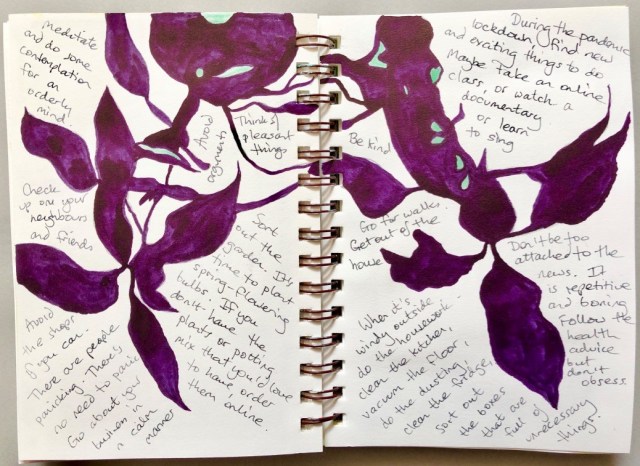 meditate
and do some
contemplation
for an
orderly
mind
Avoid
arguments
Think
pleasant
things
Check
up on your
neighbours
and friends
Sort
out the
garden. It's
time to plant
spring-flowering
bulbs. If you
don't have the
plants or potting
mix that you'd love
to have, order
them online.
Avoid
the shops
if you can.
There are people
panicking. There's
no need to panic
Go about your
business in
a calm
manner
During the pandemic
lockdown find new
and exciting things to do
Maybe Take an online
class, or watch a
documentary
or learn
to sing
Be kind
Go for walks.
Get out of the
house
When it's
windy outside
do the housework.
clean the kitchen,
vacuum the floor,
do the dusting,
clean the fridge,
sort out
the boxes
that are
full of
unnecessary
things.
Don't be too
attached to the
news. It
is repetitive
and boring
Follow the
health
advice
but
don't
obsess.